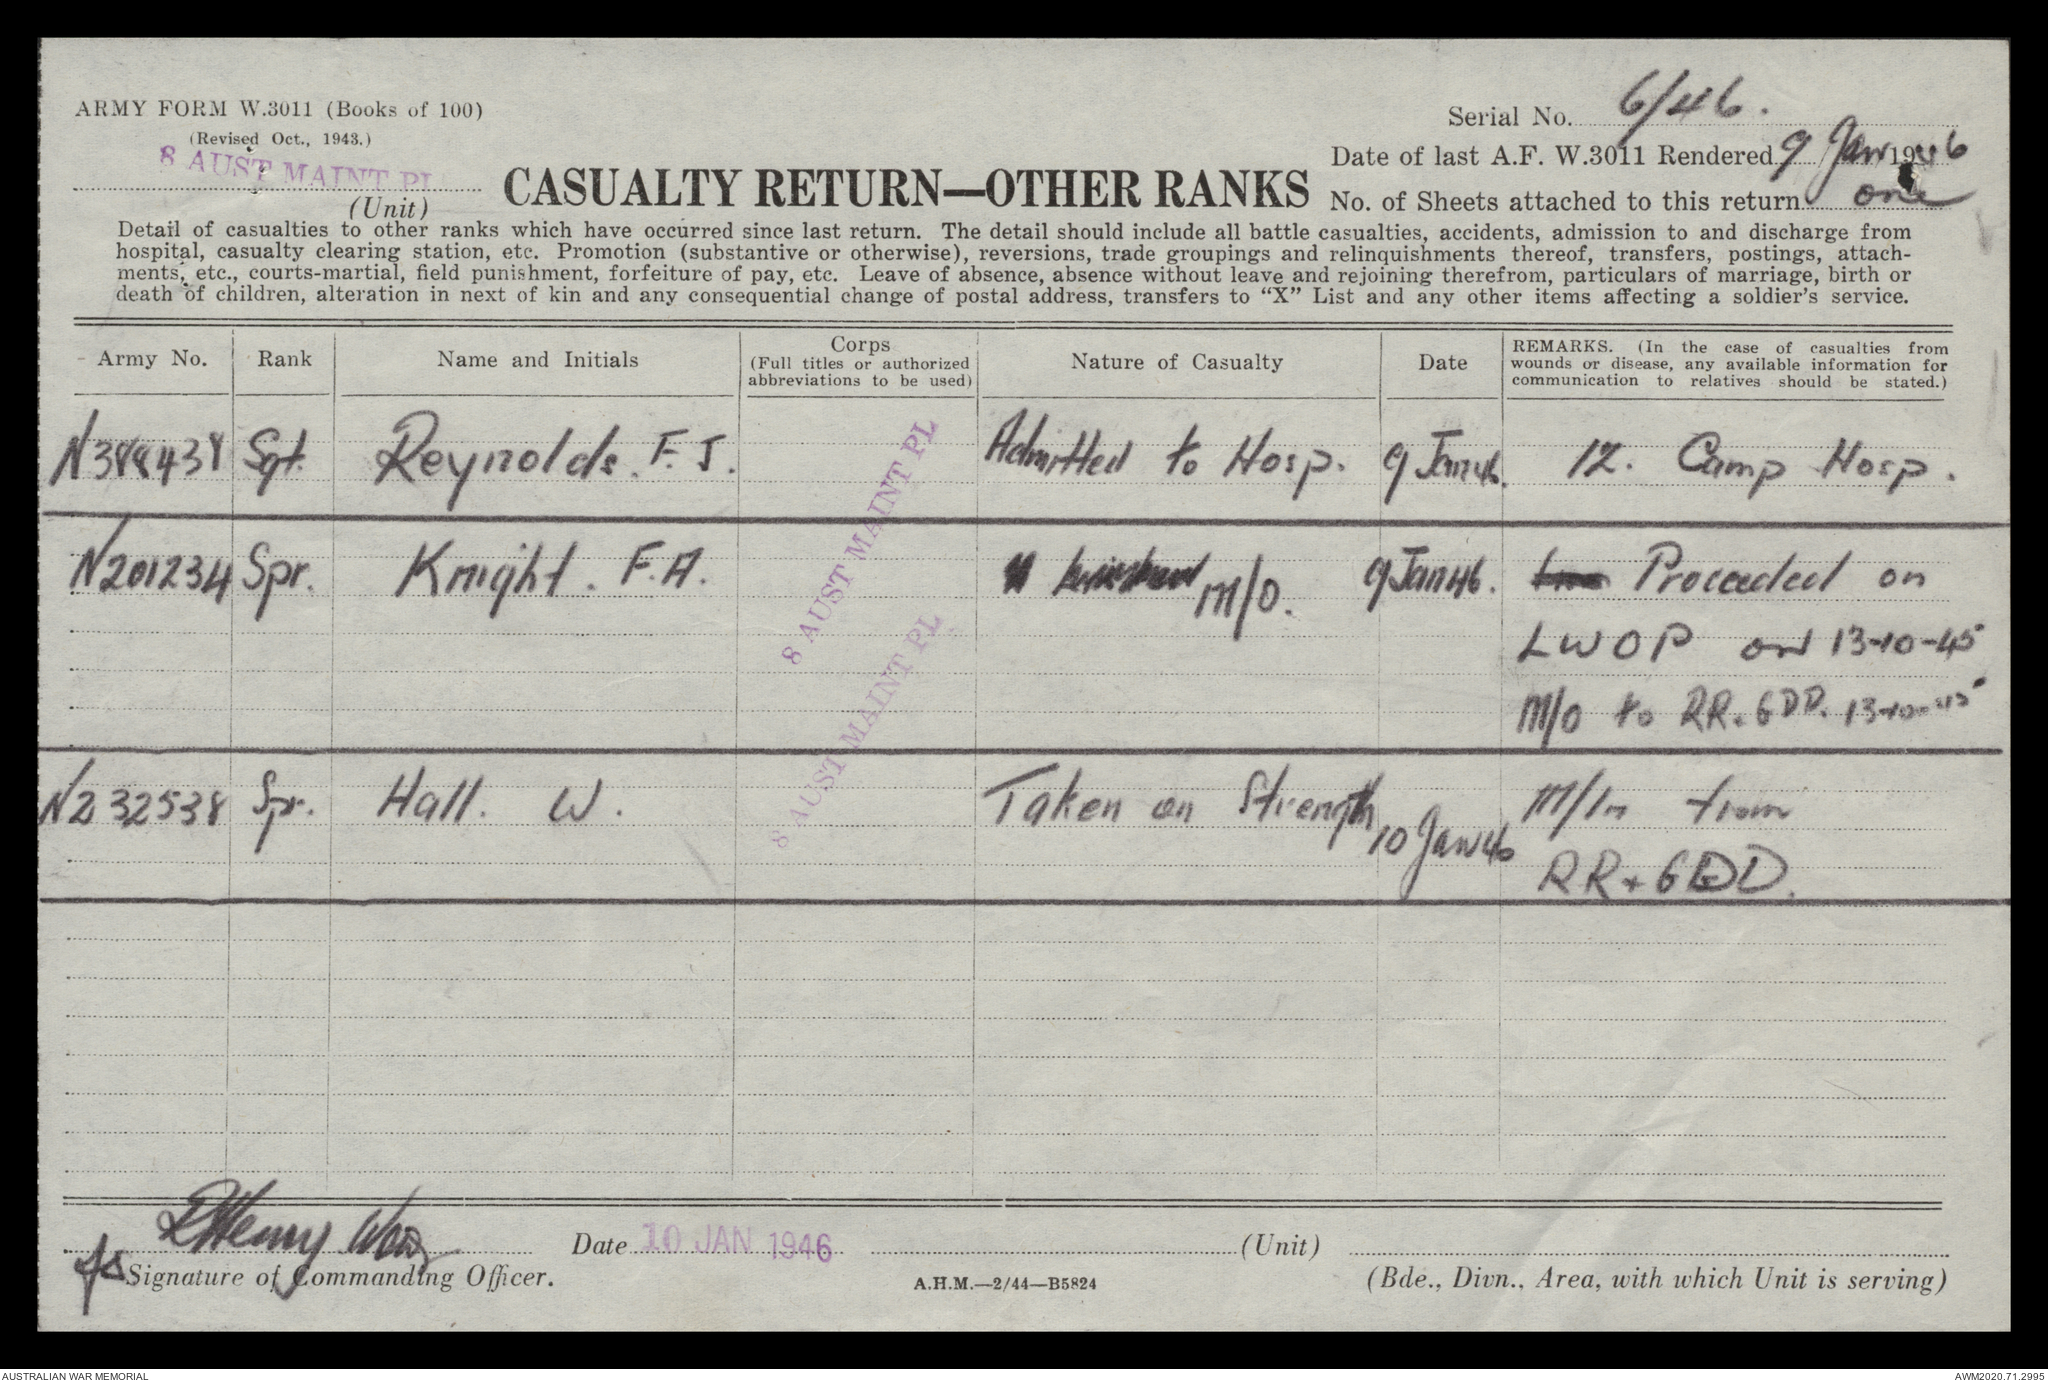 ARMY FORM W.3011 (Books of 100)
(Revised Oct., 1943.)
8 AUST MAINT PL
(Unit)
CASUALTY RETURN—OTHER RANKS
Serial No. 6/46.
Date of last A.F. W.3011 Rendered 9 Jan 1946
No. of Sheets attached to this return one
Detail of casualties to other ranks which have occurred since last return. The detail should include all battle casualties, accidents, admission to and discharge from
hospital, casualty clearing station, etc. Promotion (substantive or otherwise), reversions, trade groupings and relinquishments thereof, transfers, postings, attach-
ments, etc., courts-martial, field punishment, forfeiture of pay, etc. Leave of absence, absence without leave and rejoining therefrom, particulars of marriage, birth or
death of children, alteration in next of kin and any consequential change of postal address, transfers to "X" List and any other items affecting a soldier's service.
Army No.
Rank
Name and Initials
Corps
(Full titles or authorized
abbreviations to be used)
Nature of Casualty
Date
REMARKS. (In the case of casualties from
wounds or disease, any available information for
communication to relatives should be stated.)
N388438 Sgt. Reynolds. F. J. Admitted to Hosp. 9 Jan 46. 12. Camp Hosp.
8 AUST MAINT PL
N201234 Spr. Knight. F.A. M/O. 9 Jan 46. Proceeded on
LWOP on 13-10-45
M/O to RR. GDD. 13-10-45
8 AUST MAINT PL
N232538 Spr. Hall. W. Taken on Strength 10 Jan 46 M/In from
RR + GDD.
Henry
Signature of Commanding Officer.
Date 10 JAN 1946
(Unit)
A.H.M.—2/44—B5824
(Bde., Divn., Area, with which Unit is serving)
AUSTRALIAN WAR MEMORIAL
AWM2020.71.2995